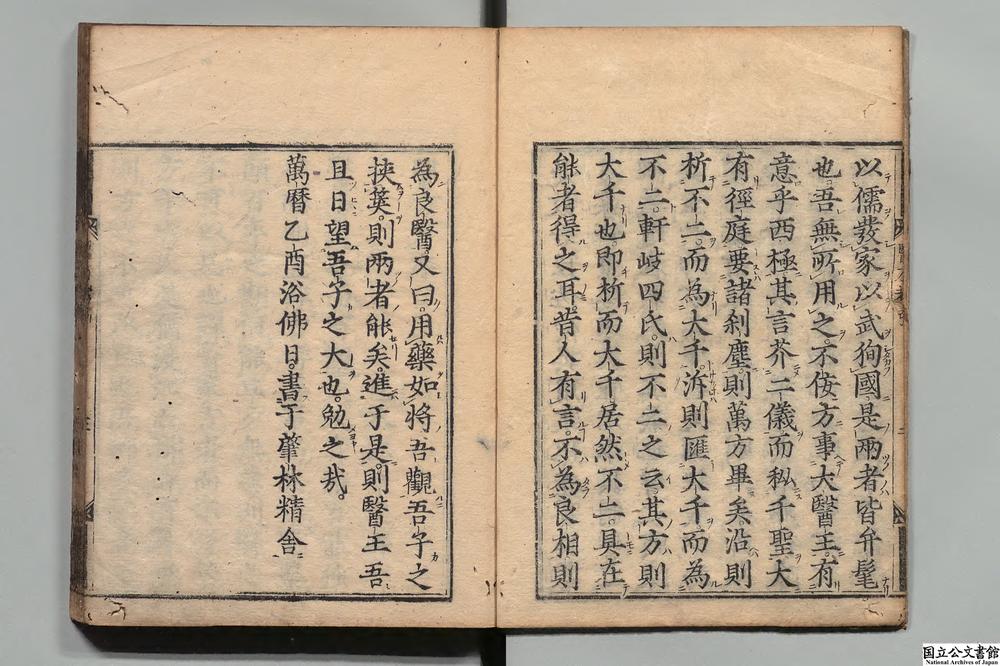 以儒發家以武狥國是兩者皆弁髦
也吾無所用之不佞方事大醫王有
意乎西極其言芥二儀而私千聖大
有徑庭要諸刹塵則萬方畢矣沿則
析不二而為大千泝則匯大千而為
不二軒岐四氏則不二之云其方則
大千也即析而大千居然不二具在
能者得之耳昔人有言不為良相則
為良醫又曰用藥如將吾觀吾子之
挾莢則兩者能矣進于是則醫王吾
且日望吾子之大也勉之哉
萬曆乙酉浴佛日書于肇林精舍
国立公文書館
National Archives of Japan